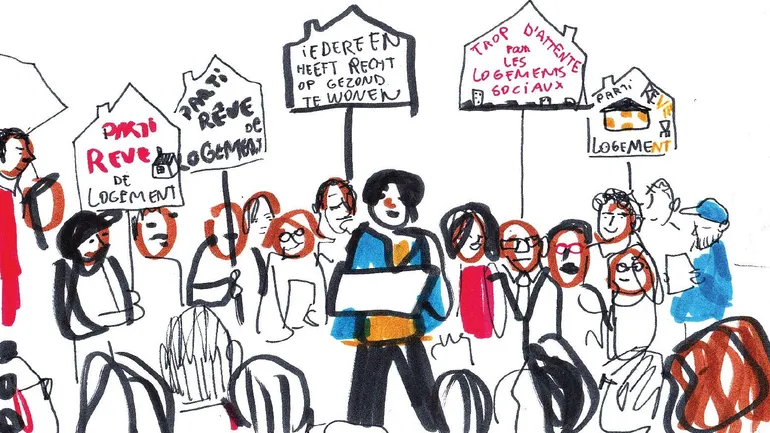 PARTI
REVE
DE
LOGEMENT
PARTI
RÊVE
DE
LOGEMENT
iEDEREEN
HEEFT RECHT
OP GEZOND
TE WONEN
TROP D'ATTENTE
POUR
LES
LOGEMENTS
SOCIAUX
PARTI RÊVE
DE
LOGEMENT